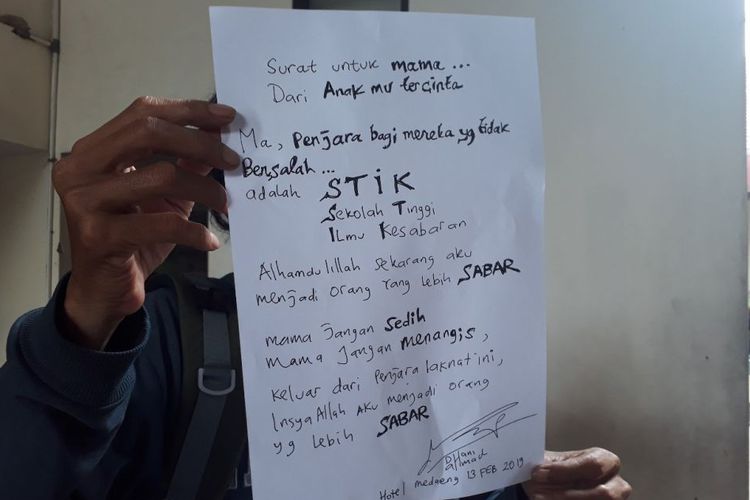 Surat untuk mama ...
Dari Anak mu tercinta
Ma, Penjara bagi mereka yg tidak
Bersalah ...
adalah STIK
Sekolah Tinggi
ILmu Kesabaran
Alhamdulillah sekarang aku
menjadi orang yang lebih SABAR
mama Jangan sedih
mama Jangan menangis,
keluar dari penjara laknat ini,
InsyaAllah Aku menjadi orang
yg lebih SABAR
DHani
aHmad
Hotel medaeng 13 FEB 2019